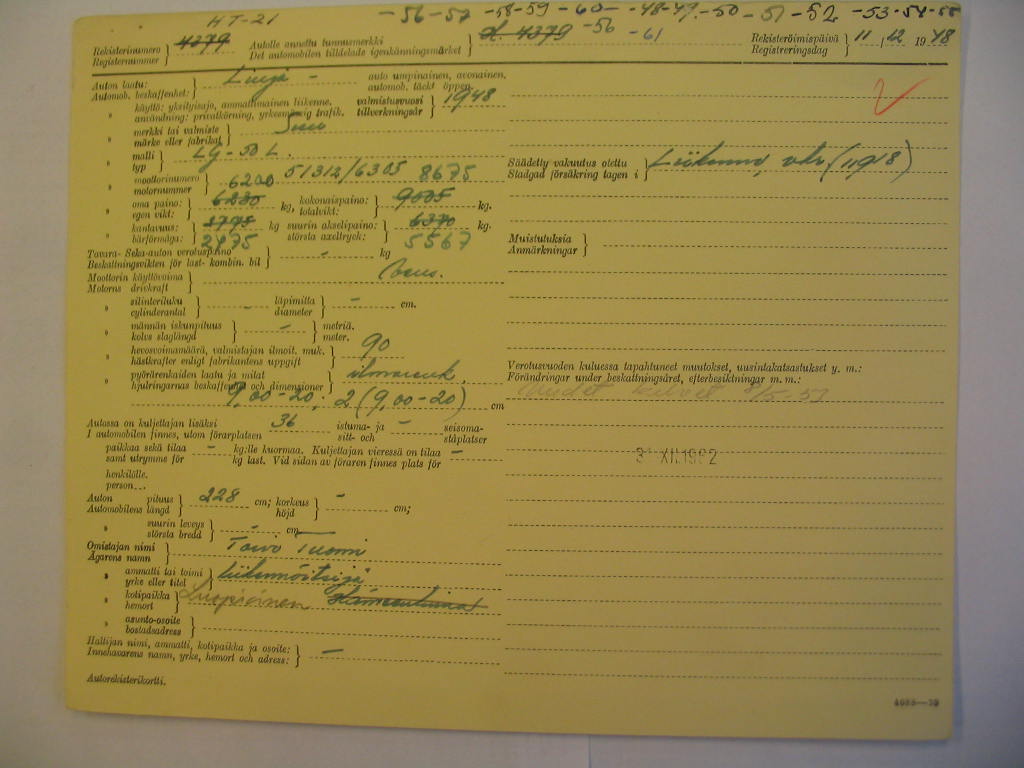 HT-21 -56-57 -58-59 -60- -48-49.-50 -51-52 -53-54-55
Rekisterinumero } 4379 Autolle annettu tunnusmerkki } H. 4379 -56 -61 Rekisteröimispäivä } 11/12 1948
Registernummer Det automobilen tilldelats igenkänningsmärket Registreringsdag
Auton laatu: } Linja - auto umpinainen, avonainen,
Automob. beskaffenhet: automob. täckt öppen.
" käyttö: yksityisajo, ammattimainen liikenne. valmistusvuosi } 1948
användning: privatkörning, yrkesmässig trafik. tillverkningsår
" merkki tai valmiste } Sisu
märke eller fabrikat
" malli } LG-50 L.
typ
" moottorinumero } 51312/6305 8675
motornummer 6200
" oma paino: } 6230 kg, kokonaispaino: } 9005 kg.
egen vikt: totalvikt:
" kantavuus: } 2775 kg suurin akselipaino: } 6370 kg.
bärförmåga: 2475 största axeltryck: 5567
Tavara- Seka-auton verotuspaino } - kg
Beskattningsvikten för last- kombin. bil
Moottorin käyttövoima } bens.
Motorns drivkraft
" silinteriluku } - läpimitta } - cm.
cylinderantal diameter
" männän iskunpituus } - metriä.
kolvs slaglängd meter.
" hevosvoimamäärä, valmistajan ilmoit. muk. } 90
hästkrafter enligt fabrikantens uppgift
" pyörärenkaiden laatu ja mitat } ilmarenk.
hjulringarnas beskaffenhet och dimensioner
9,00-20; 2 (9,00-20) cm
Autossa on kuljettajan lisäksi 36 istuma- ja - seisoma-
I automobilen finnes, utom förarplatsen sitt- och ståplatser
paikkaa sekä tilaa - kg:lle kuormaa. Kuljettajan vieressä on tilaa -
samt utrymme för kg last. Vid sidan av föraren finnes plats för
henkilölle.
person...
Auton pituus } 228 cm; korkeus } - cm;
Automobilens längd höjd
" suurin leveys } - cm
största bredd
Omistajan nimi } Toivo Tuomi
Ägarens namn
" ammatti tai toimi } liikennöitsijä
yrke eller titel
" kotipaikka } Luopioinen Hämeenlinna
hemort
" asunto-osoite }
bostadsadress
Haltijan nimi, ammatti, kotipaikka ja osoite: } -
Innehavarens namn, yrke, hemort och adress:
Autorekisterikortti.
Säädetty vakuutus otettu } Liikenne, vak (1918)
Stadgad försäkring tagen i
Muistutuksia }
Anmärkningar
Verotusvuoden kuluessa tapahtuneet muutokset, uusintakatsastukset y. m.:
Förändringar under beskattningsåret, efterbesiktningar m. m.:
Uudet kilvet
31 XII.1962
4085—39